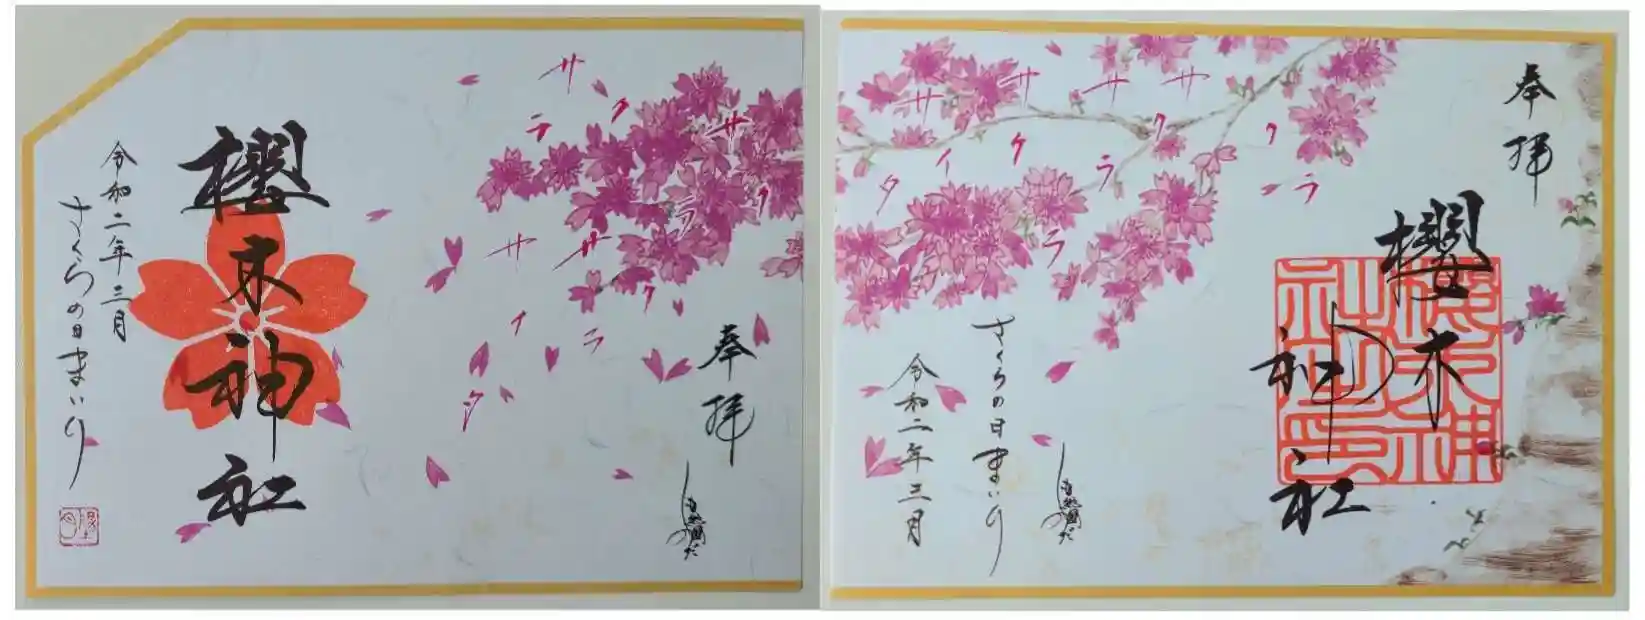 奉拝
櫻木神社
さくらの日まいり
令和二年三月
サ サ サ サ
ク ク ク
タ イ ラ ラ ラ
奉拝
櫻木神社
令和二年三月
さくらの日まいり
サ サ サ サ
ラ ク ク ク
イ ラ ラ
タ